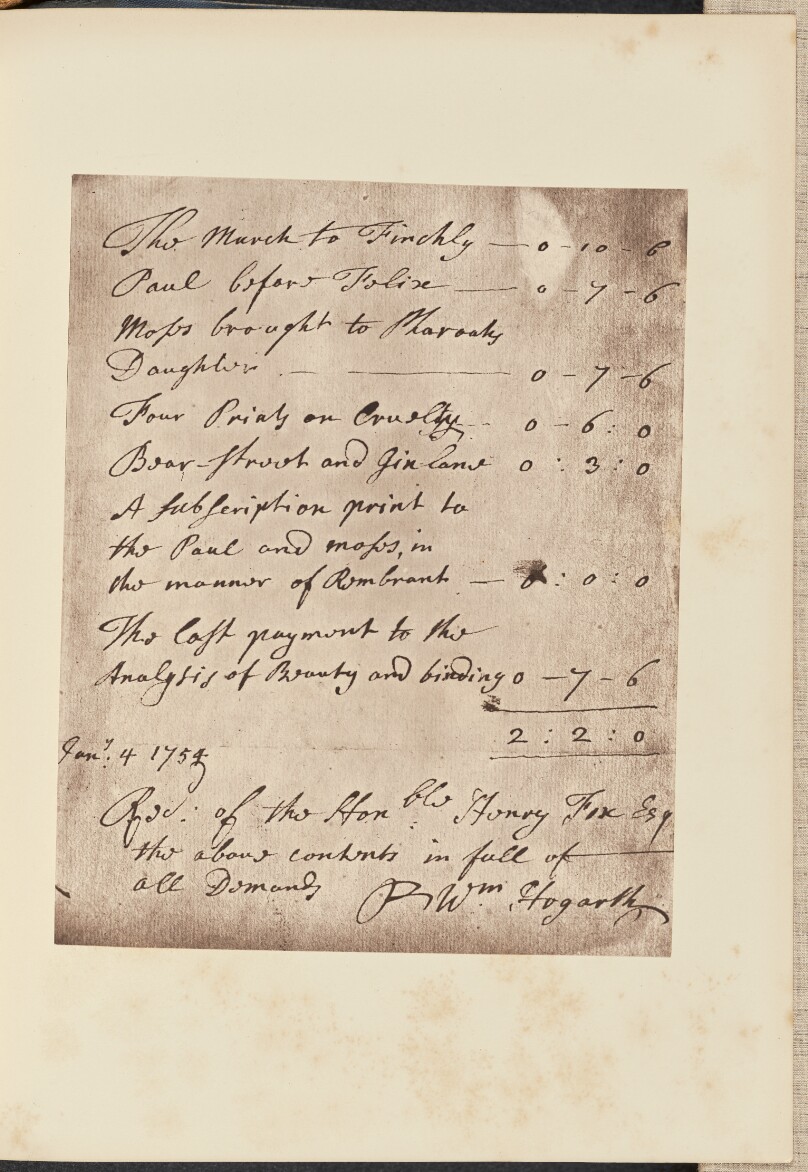 The March to Finchly — 0 - 10 - 6
Paul before Felix — 0 - 7 - 6
Moses brought to Pharoahs
Daughter. — 0 - 7 - 6
Four Prints on Cruelty — 0 - 6 : 0
Bear-street and Gin lane 0 : 3 : 0
A subscription print to
the Paul and moses, in
the manner of Rembrant — 0 : 0 : 0
The last payment to the
Analysis of Beauty and binding 0 - 7 - 6
2 : 2 : 0
Jany. 4 1754
Recd: of the Honble Henry Fox Esq
the above contents in full of
all Demands P Wm Hogarth